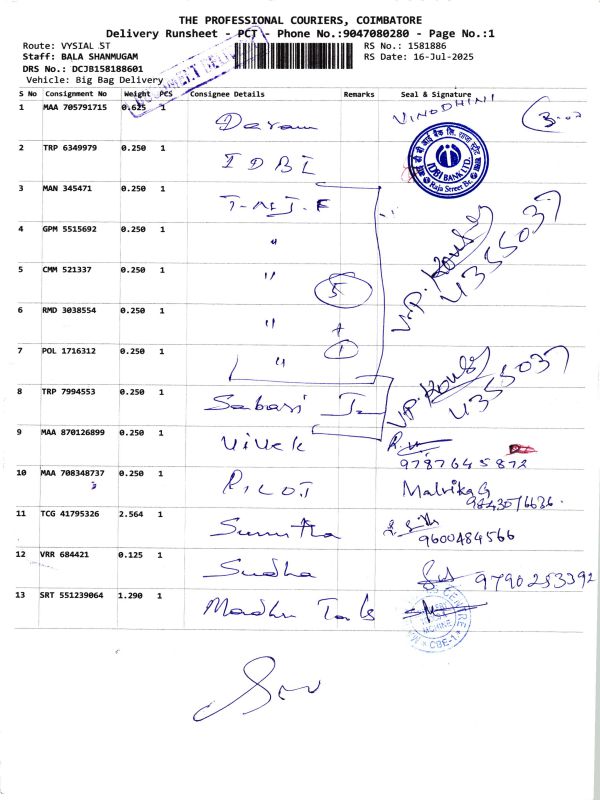 THE PROFESSIONAL COURIERS, COIMBATORE
Delivery Runsheet - PCT - Phone No.:9047080280 - Page No.:1
Route: VYSIAL ST RS No.: 1581886
Staff: BALA SHANMUGAM RS Date: 16-Jul-2025
DRS No.: DCJB158188601
Vehicle: Big Bag Delivery
S No Consignment No Weight PCS Consignee Details Remarks Seal & Signature
1 MAA 705791715 0.625 1 VINODHINI
2 TRP 6349979 0.250 1 IDBI
IDBI BANK LTD.
Raja Street Br.
3 MAN 345471 0.250 1
4 GPM 5515692 0.250 1 "
5 CMM 521337 0.250 1 " 5
6 RMD 3038554 0.250 1 " +
7 POL 1716312 0.250 1 " 1
V.P. 4355037
8 TRP 7994553 0.250 1 Sabari
V.P. 4355037
9 MAA 870126899 0.250 1 Vivek
9787645872
10 MAA 708348737 0.250 1 PILOT Malvika G
11 TCG 41795326 2.564 1 Sumitha
9600484566
12 VRR 684421 0.125 1 Sudha 9790253392
13 SRT 551239064 1.290 1 Madhu
CBE-1